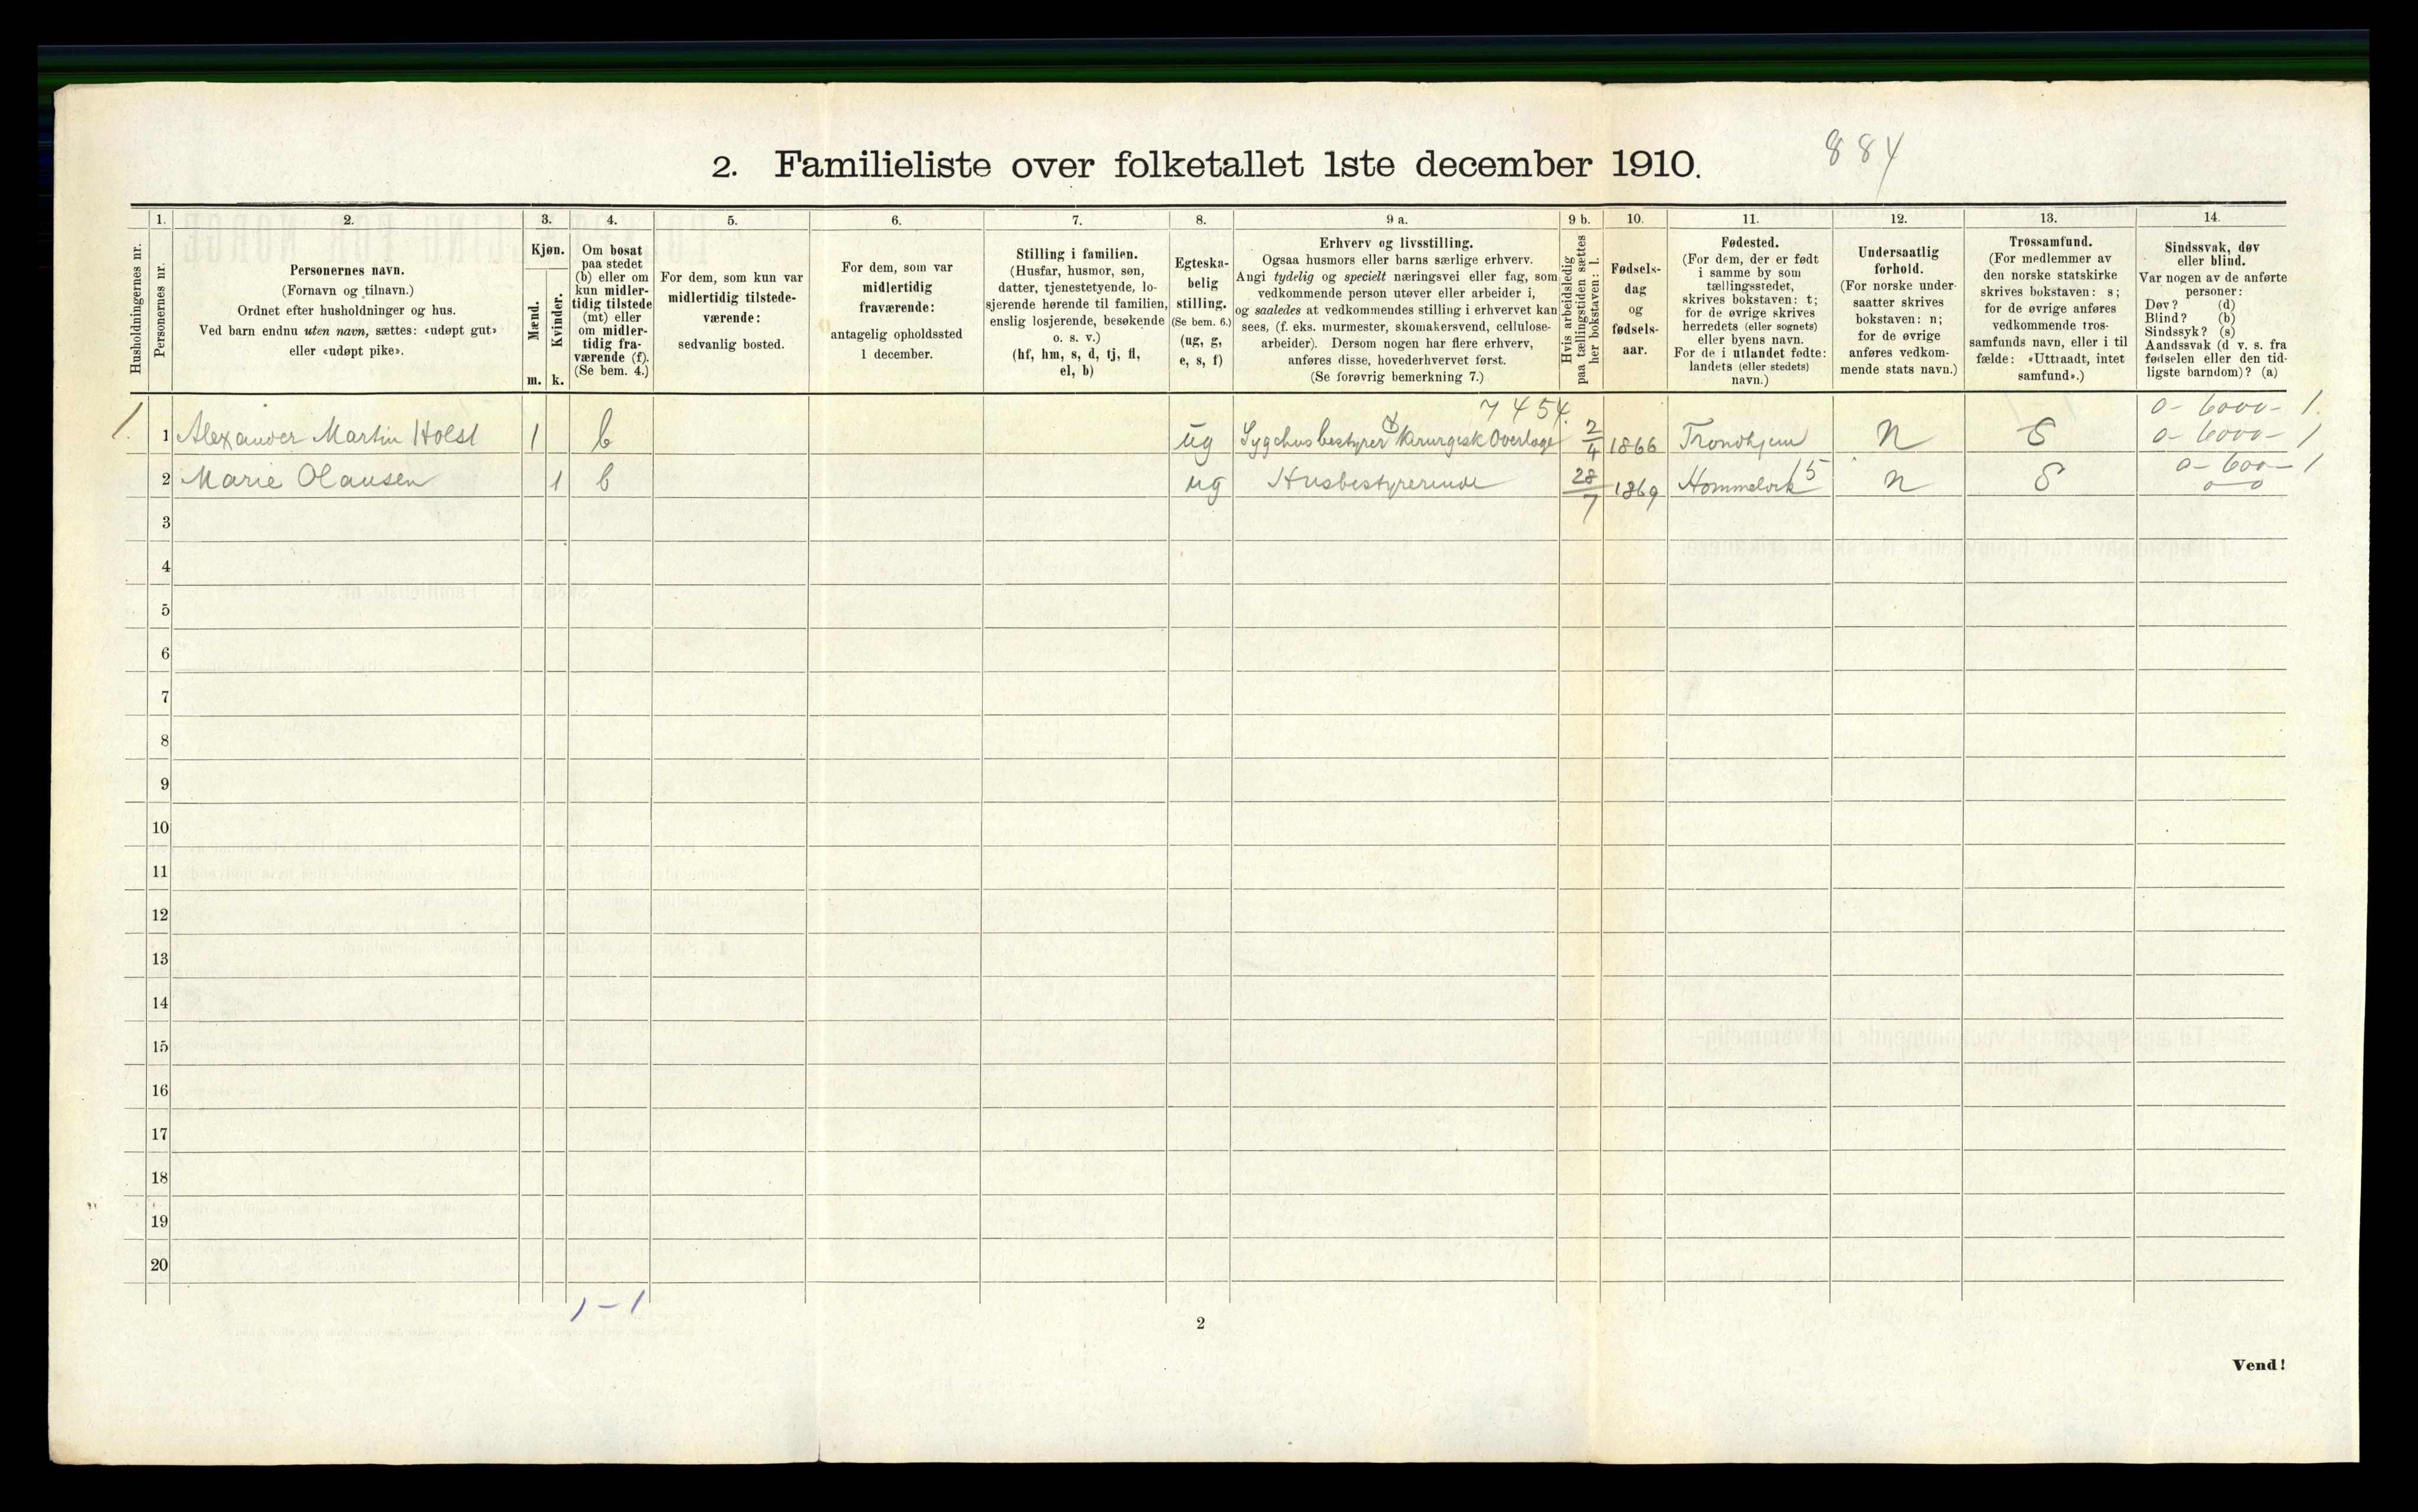 884
2. Familieliste over folketallet 1ste december 1910.
1. 2. 3. 4. 5. 6. 7. 8. 9 a. 9 b. 10. 11. 12. 13. 14.
Husholdningernes nr.
Personernes nr.
Personernes navn.
(Fornavn og tilnavn.)
Ordnet efter husholdninger og hus.
Ved barn endnu uten navn, sættes: «udøpt gut»
eller «udøpt pike».
Kjøn.
Mænd.
Kvinder.
m. k.
Om bosat
paa stedet
(b) eller om
kun midler-
tidig tilstede
(mt) eller
om midler-
tidig fra-
værende (f).
(Se bem. 4.)
For dem, som kun var
midlertidig tilstede-
værende:
sedvanlig bosted.
For dem, som var
midlertidig
fraværende:
antagelig opholdssted
1 december.
Stilling i familien.
(Husfar, husmor, søn,
datter, tjenestetyende, lo-
sjerende hørende til familien,
enslig losjerende, besøkende
o. s. v.)
(hf, hm, s, d, tj, fl,
el, b)
Egteska-
belig
stilling.
(Se bem. 6.)
(ug, g,
e, s, f)
Erhverv og livsstilling.
Ogsaa husmors eller barns særlige erhverv.
Angi tydelig og specielt næringsvei eller fag, som
vedkommende person utøver eller arbeider i,
og saaledes at vedkommendes stilling i erhvervet kan
sees, (f. eks. murmester, skomakersvend, cellulose-
arbeider). Dersom nogen har flere erhverv,
anføres disse, hovederhvervet først.
(Se forøvrig bemerkning 7.)
Hvis arbeidsledig
paa tællingstiden sættes
her bokstaven: l.
Fødsels-
dag
og
fødsels-
aar.
Fødested.
(For dem, der er født
i samme by som
tællingsstedet,
skrives bokstaven: t;
for de øvrige skrives
herredets (eller sognets)
eller byens navn.
For de i utlandet fødte:
landets (eller stedets)
navn.)
Undersaatlig
forhold.
(For norske under-
saatter skrives
bokstaven: n;
for de øvrige
anføres vedkom-
mende stats navn.)
Trossamfund.
(For medlemmer av
den norske statskirke
skrives bokstaven: s;
for de øvrige anføres
vedkommende tros-
samfunds navn, eller i til
fælde: «Uttraadt, intet
samfund».)
Sindssvak, døv
eller blind.
Var nogen av de anførte
personer:
Døv? (d)
Blind? (b)
Sindssyk? (s)
Aandssvak (d v. s. fra
fødselen eller den tid-
ligste barndom)? (a)
7454. 0- 6000- 1.
1. 1 Alexander Martin Holst 1 b ug Sygehusbestyrer & Kirurgisk Overlæge 2/4 1866 Trondhjem n S 0- 6000- 1
15 0- 600- 1
2 Marie Olausen 1 b ug Husbestyrerinde 28/7 1869 Hommelvik n S 0-0
3
4
5
6
7
8
9
10
11
12
13
14
15
16
17
18
19
20
1-1
2
Vend!